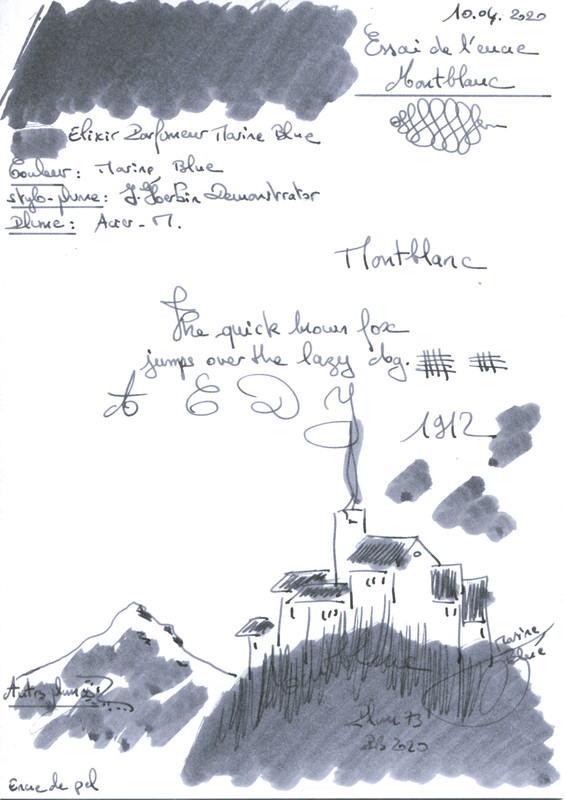 10.04. 2020
Essai de l'encre
Montblanc
Elixir Parfumeur Marine Blue
Couleur: Marine Blue
Stylo-plume: J. Herbin Demonstrator
Plume: Acier - M.
Montblanc
The quick brown fox
jumps over the lazy dog.
A E D Y
1912
Montblanc
Marine
Blue
2020